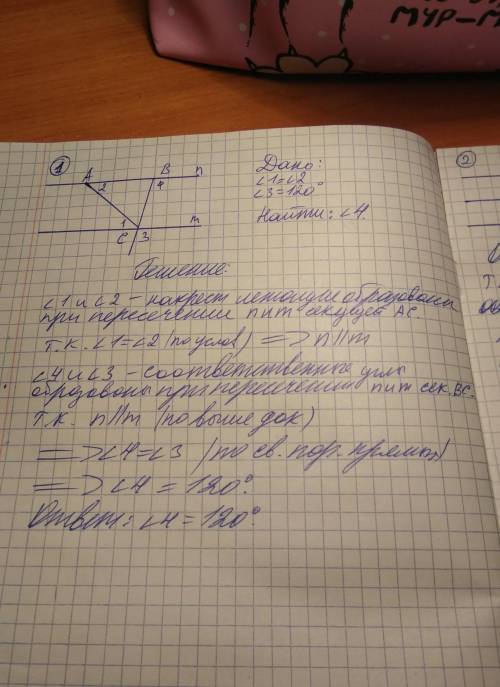 МУР-М
1
A
B
n
2
4
1
m
C
3
Дано:
∠1=∠2
∠3=120°
Найти: ∠4.
Решение:
∠1 и ∠2 - накрест лежащие образованы
при пересечении n и m секущей AC.
т.к. ∠1=∠2 (по услов) => n||m
∠4 и ∠3 - соответственные углы
образованы при пересечении n и m сек. BC.
т.к. n||m (по выше док)
=> ∠4=∠3 (по св. пар. прямых)
=> ∠4 = 120°.
Ответ: ∠4 = 120°.
2